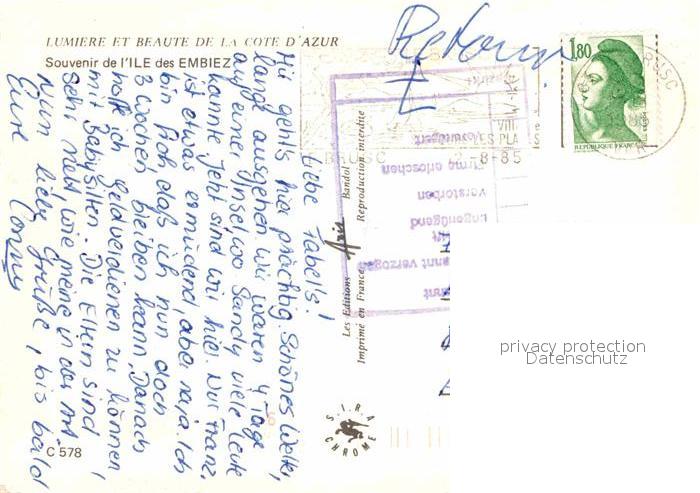 LUMIERE ET BEAUTE DE LA COTE D'AZUR
Souvenir de l'ILE des EMBIEZ
Retour
1,80
REPUBLIQUE FRANCAISE
BRUSC
BRUSC
-8-85
VIII
Liebe Fabels!
Mir geht's hier prächtig. Schönes Wetter,
lange ausgehen wir waren 4 Tage
auf einer Insel, wo Sandy viele Leute
kannte. Jetzt sind wir hier. Nur Franz.
ist etwas ermüdend, aber naja. Ich
bin froh, daß ich nun doch
3 Wochen bleiben kann. Danach
hoffe ich Geld verdienen zu können
mit Babysitten. Die Eltern sind
sehr nett, wie meine in der Art.
Nun liebe Grüße, bis bald
Eure Conny
Les Editions Aris Bandol
Imprimé en France Reproduction interdite
Firma erloschen
Verstorben
ungenügend
annt verzogen
S.I.R.A.
CHROME
C 578
privacy protection
Datenschutz